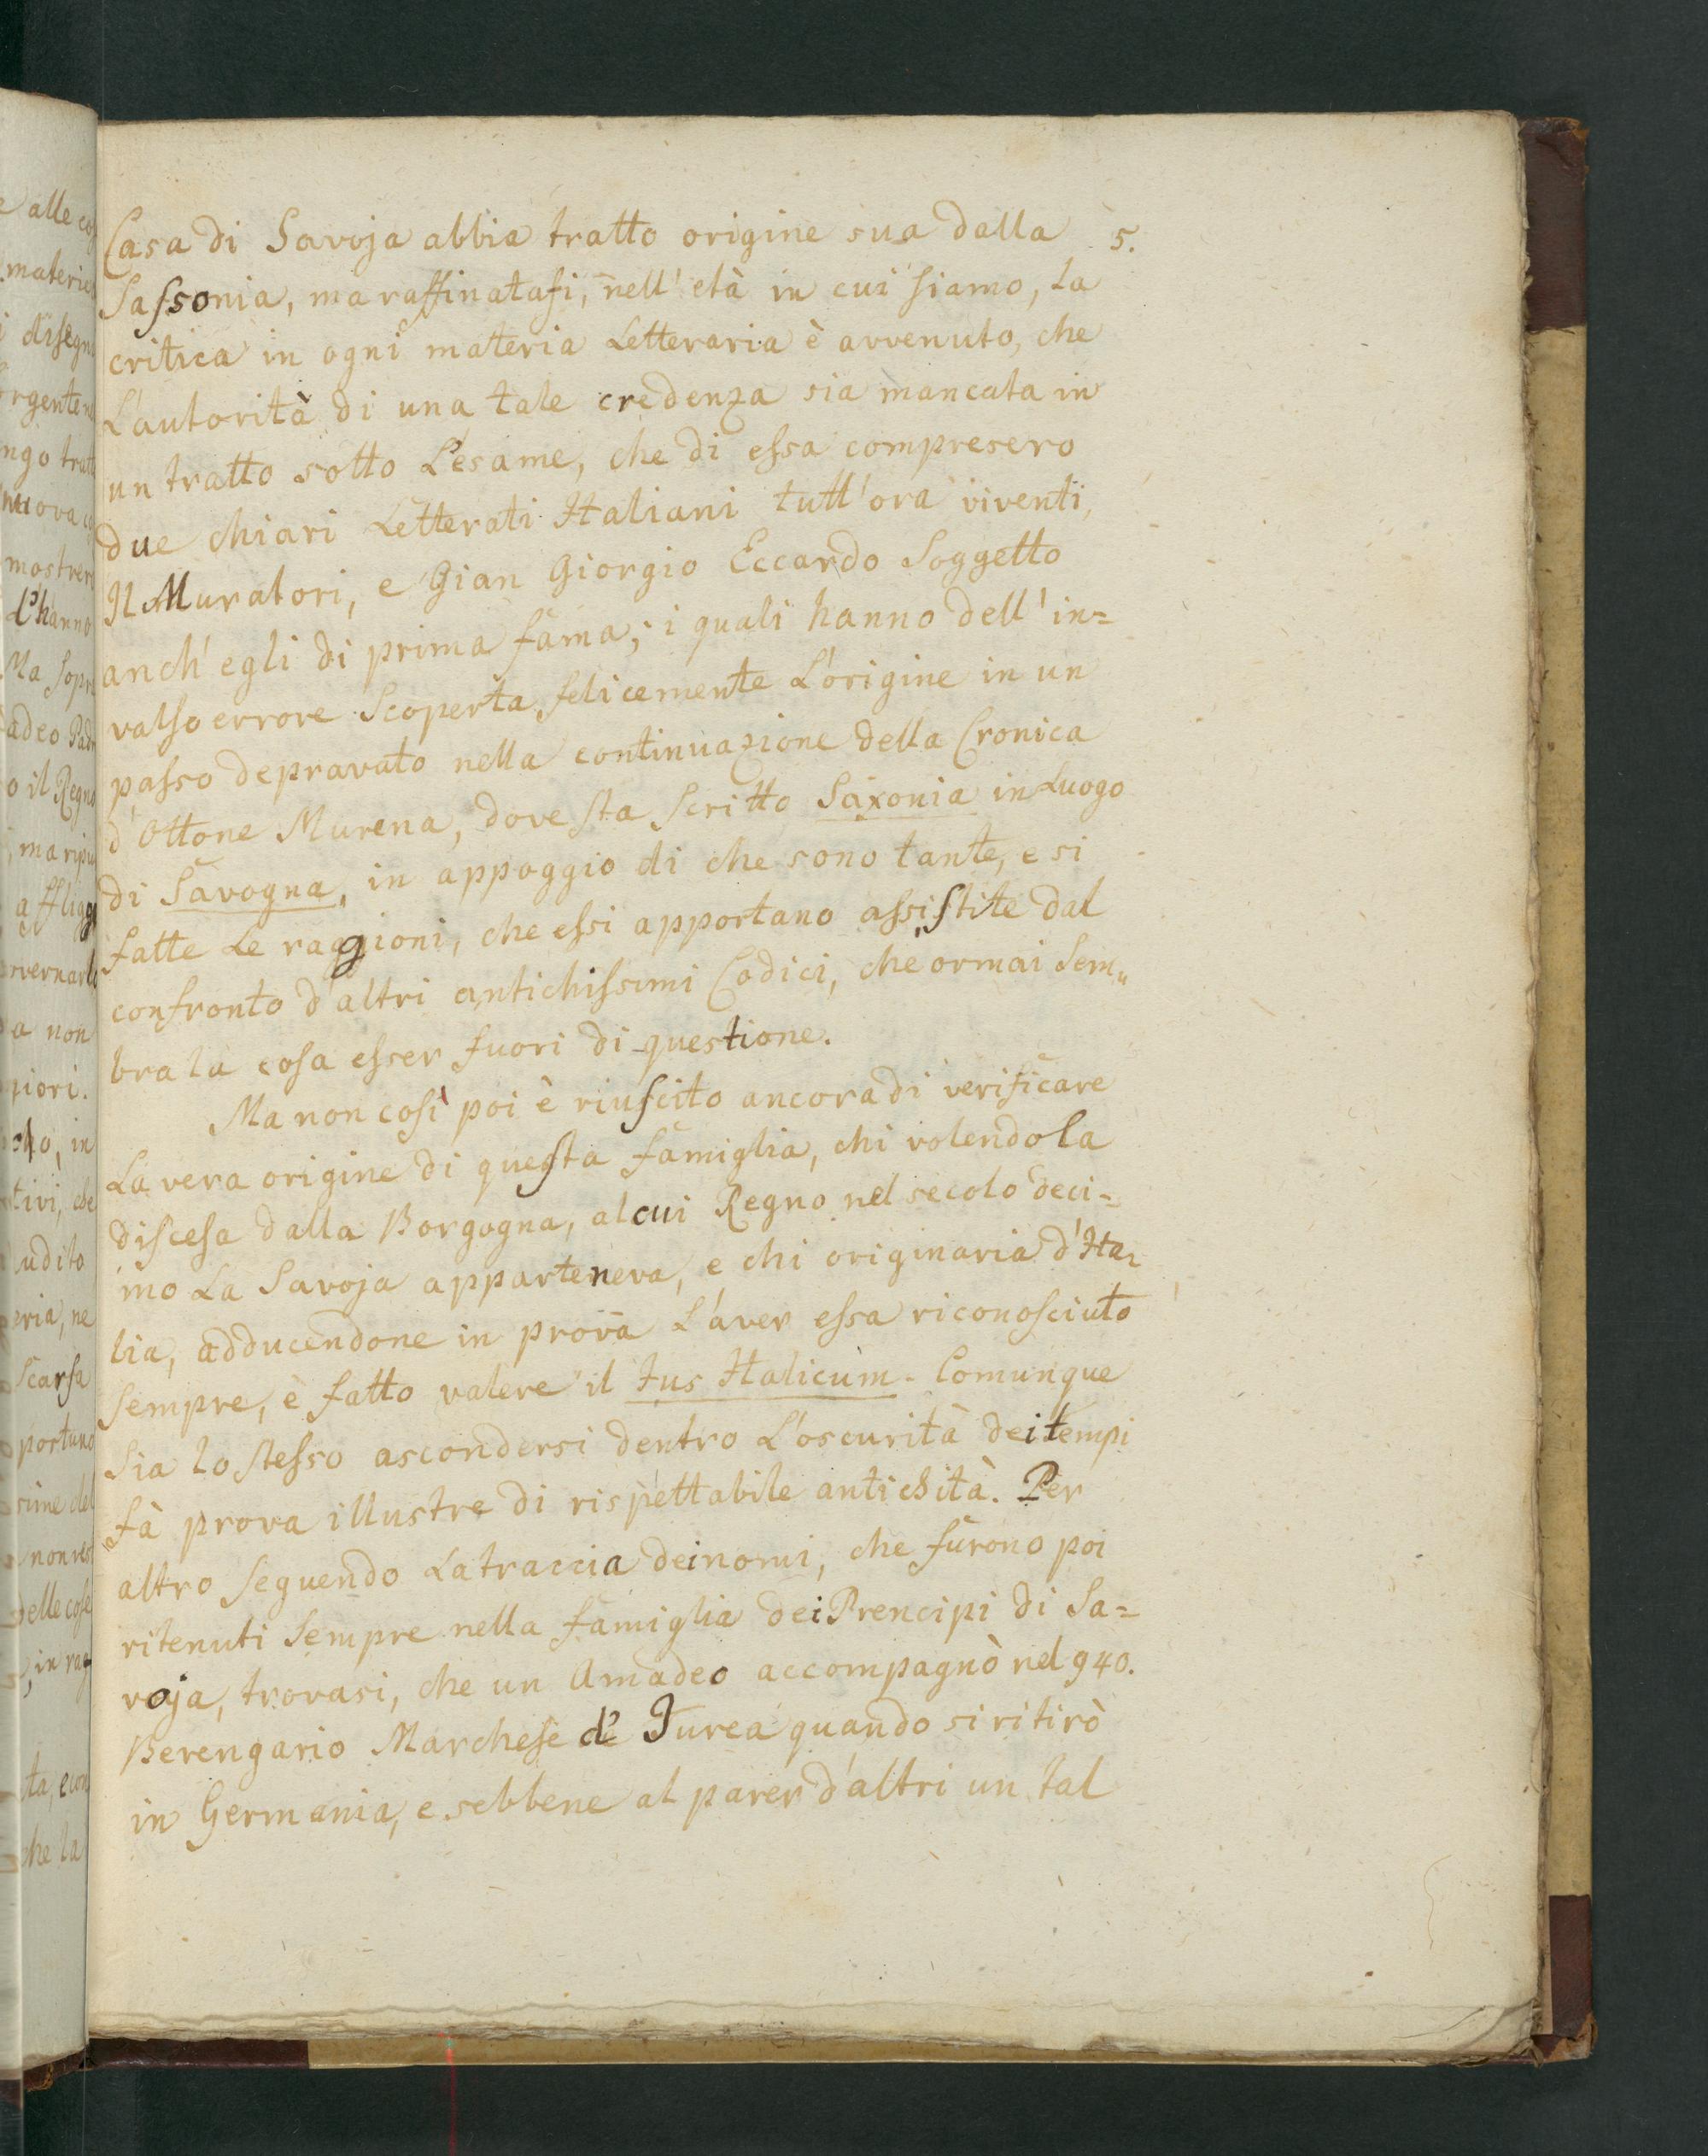 5.
Casa di Savoja abbia tratto origine sua dalla
Sassonia, ma raffinatasi, nell' età in cui siamo, la
critica in ogni materia Letteraria è avvenuto, che
L'autorità di una tale credenza sia mancata in
un tratto sotto L'esame, che di essa compresero
due chiari Letterati Italiani tutt'ora viventi,
Il Muratori, e Gian Giorgio Eccardo Soggetto
anch'egli di prima fama, i quali hanno dell'in=
valso errore Scoperta felicemente L'origine in un
passo depravato nella continuazione della Cronica
d'Ottone Murena, dove sta Scritto Saxonia in Luogo
di Savogna, in appoggio di che sono tante, e si
fatte Le raggioni, che essi apportano assistite dal
confronto d'altri antichissimi Codici, che ormai Sem„
bra la cosa esser fuori di questione.
Ma non così poi è riuscito ancora di verificare
La vera origine di questa famiglia, chi volendola
discesa dalla Borgogna, al cui Regno nel secolo deci=
mo La Savoja apparteneva, e chi originaria d'Ita=
lia, adducendone in prova L'aver essa riconosciuto
Sempre, e fatto valere il Jus Italicum. Comunque
Sia lo stesso ascondersi dentro L'oscurità dei tempi
fà prova illustre di rispettabile antichità. Per
altro Seguendo La traccia dei nomi, che furono poi
ritenuti Sempre nella famiglia dei Prencipi di Sa=
voja, trovasi, che un Amadeo accompagnò nel 940.
Berengario Marchese d' Jurea quando si ritirò
in Germania, e sebbene al parer d'altri un tal
e alle co
materie
disegn
rgente
ngo tratt
nuova
mostrer
L'hanno
Ma Sopr
adeo Padr
o il Regno
, ma ripi
affligg
vernarlo
a non
riori.
, in
tivi, che
udito
eria, ne
Scarsa
portuno
sime del
non res
delle cose
, in rag
ta, e con
che la